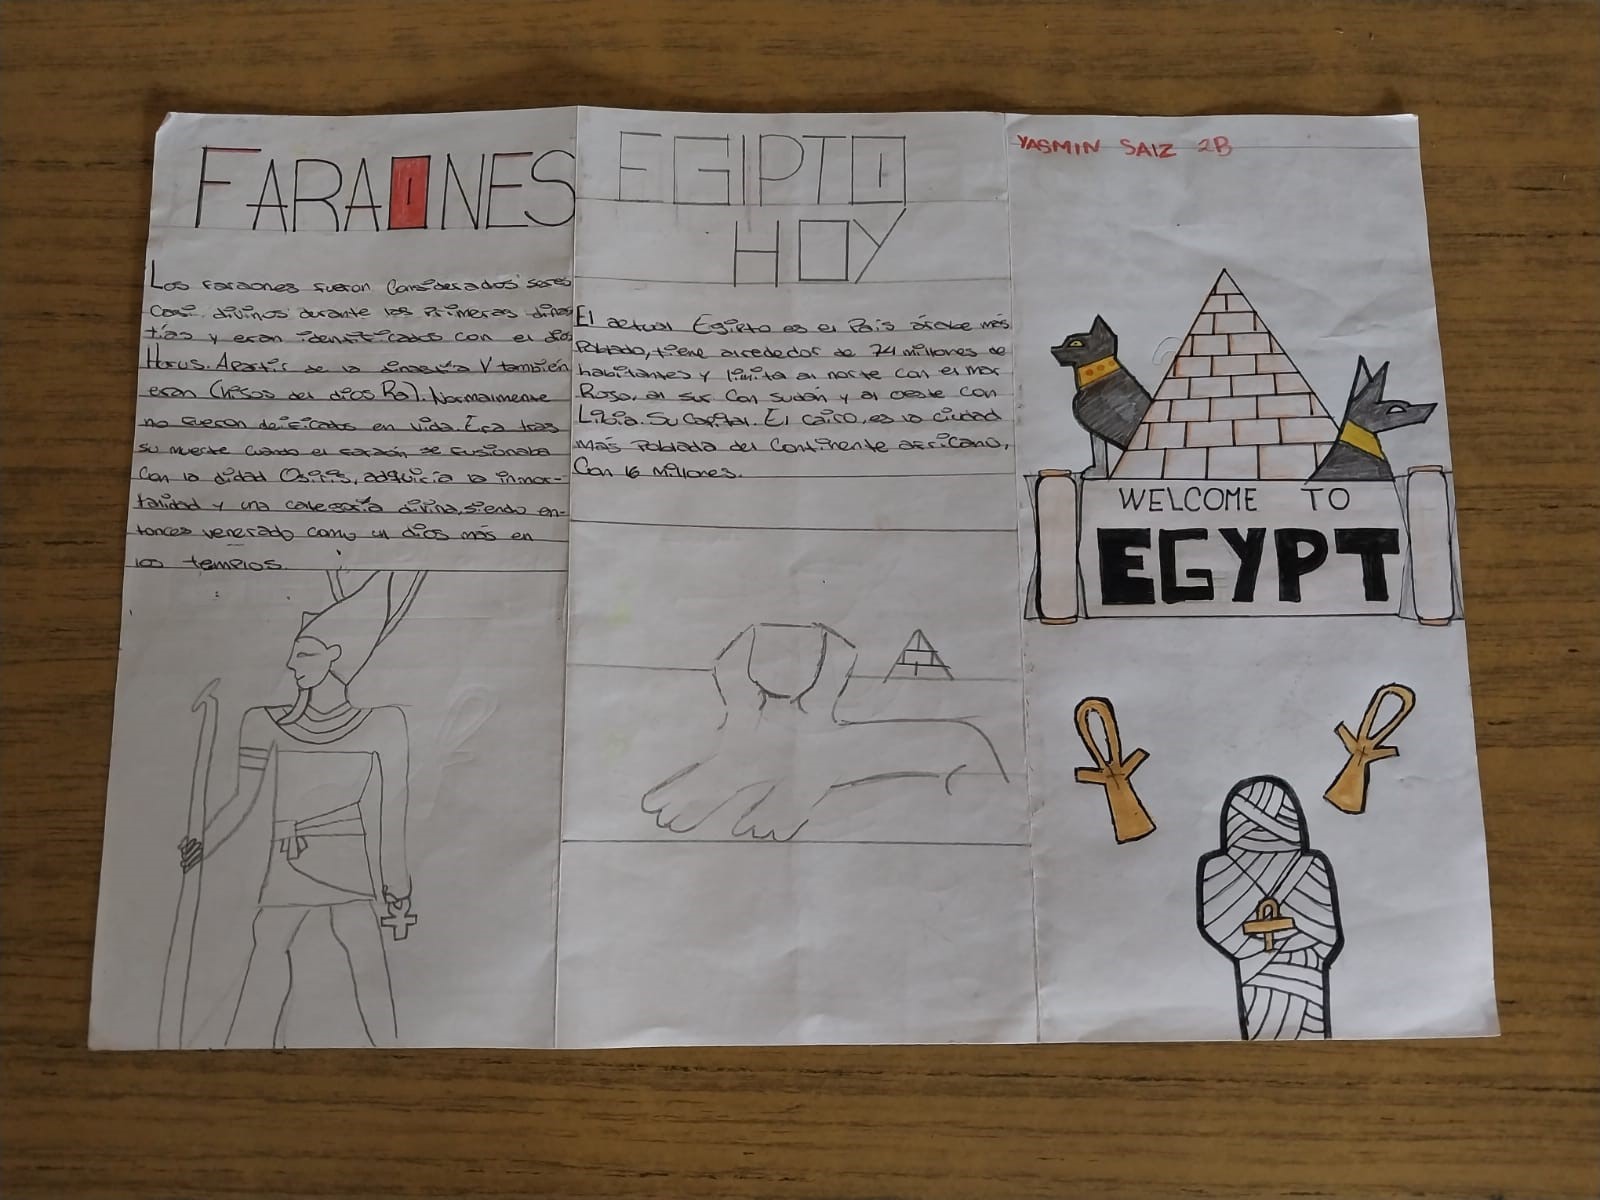 FARAONES
Los faraones fueron considerados seres
casi divinos durante las primeras dinas
tías y eran identificados con el dios
Horus. Apartir de la dinastía V también
eran (hijos del dios Ra). Normalmente
no fueron deificados en vida. Era tras
su muerte cuando el faraón se fusionaba
con la didad Osiris, adquiría la inmor-
talidad y una categoría divina, siendo en-
tonces venerado como un dios más en
los templos.
EGIPTO
HOY
El actual Egipto es el País árabe más
Poblado, tiene alrededor de 74 millones de
habitantes y limita al norte con el mar
Rojo, al sur con Sudán y al oeste con
Libia. Su Capital. El cairo, es la ciudad
más Poblada del Continente africano,
Con 16 millones.
YASMIN SAIZ 2B
WELCOME TO
EGYPT